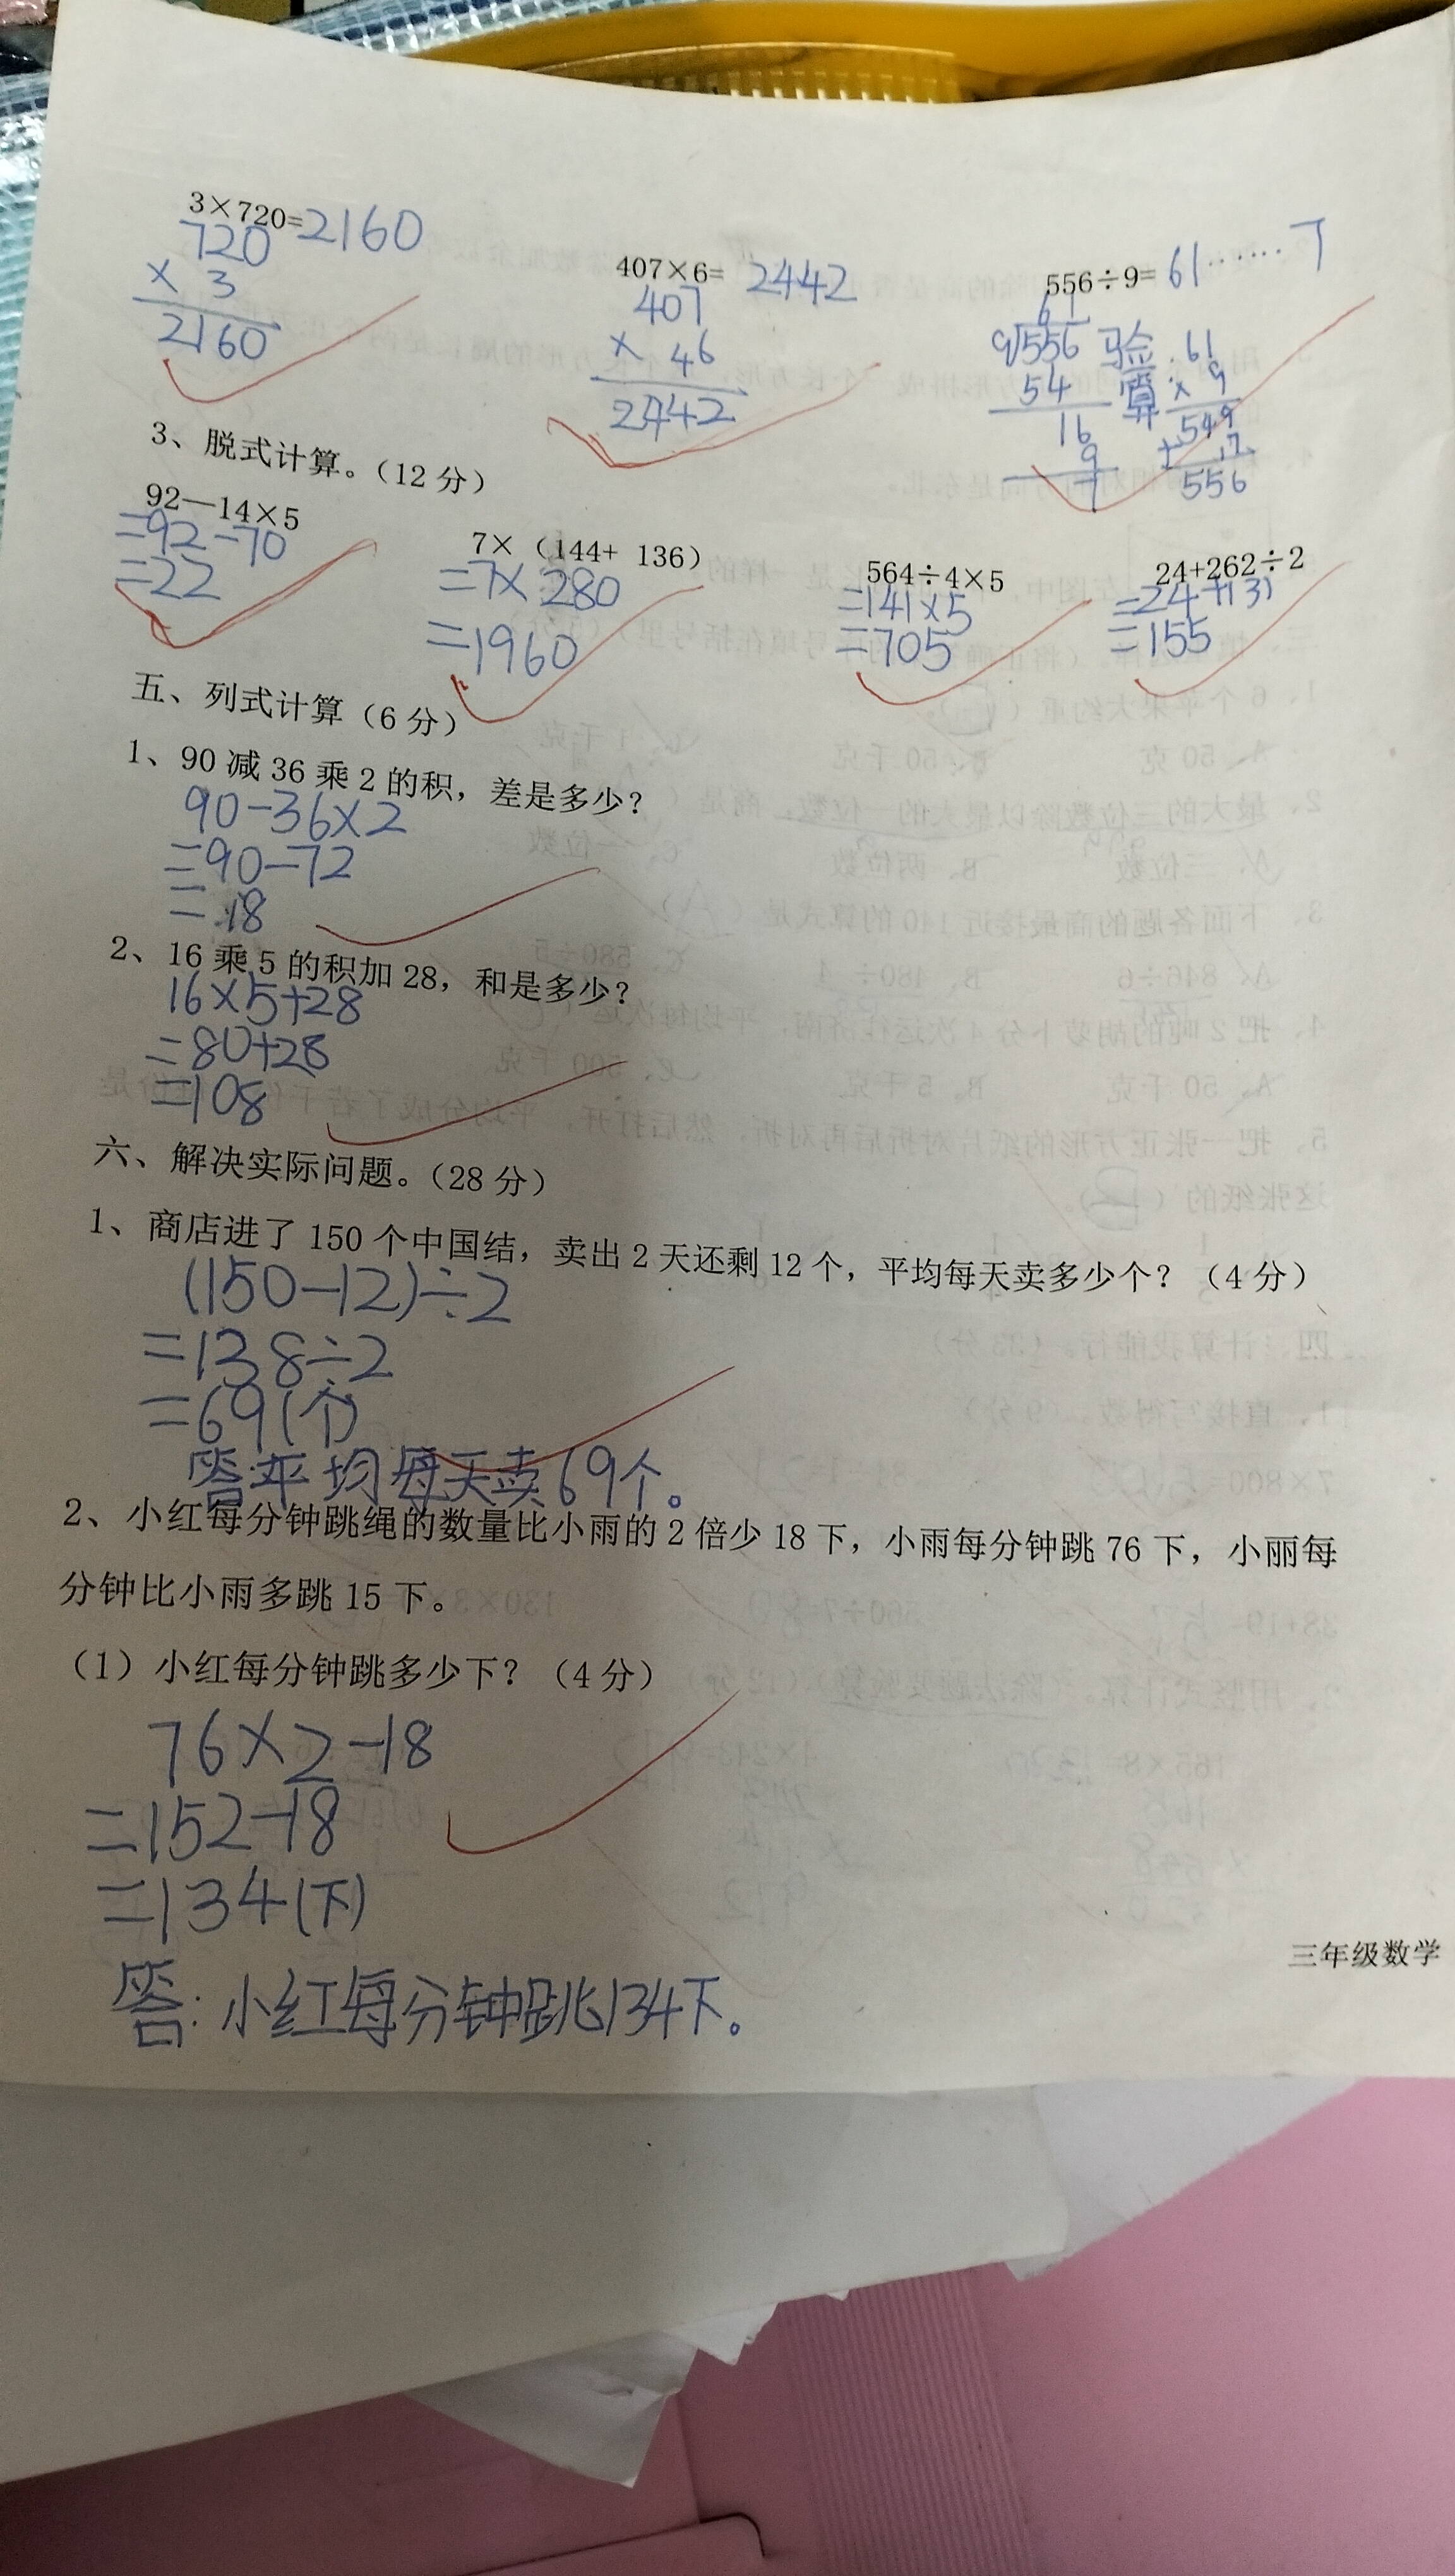 3×720=2160
720
× 3
2160
407×6= 2442
407
× 46
2442
556÷9=61……7
61
9 556
54
16
9
7
验算
61
× 9
549
+ 7
556
3、脱式计算。（12 分）
92—14×5
=92-70
=22
7×（144+ 136）
=7×280
=1960
564÷4×5
=141×5
=705
24+262÷2
=24+131
=155
五、列式计算（6 分）
1、90 减 36 乘 2 的积，差是多少？
90-36×2
=90-72
=18
2、16 乘 5 的积加 28，和是多少？
16×5+28
=80+28
=108
六、解决实际问题。（28 分）
1、商店进了 150 个中国结，卖出 2 天还剩 12 个，平均每天卖多少个？（4 分）
(150-12)÷2
=138÷2
=69(个)
答:平均每天卖69个。
2、小红每分钟跳绳的数量比小雨的 2 倍少 18 下，小雨每分钟跳 76 下，小丽每
分钟比小雨多跳 15 下。
（1）小红每分钟跳多少下？（4 分）
76×2-18
=152-18
=134(下)
答:小红每分钟跳134下。
三年级数学